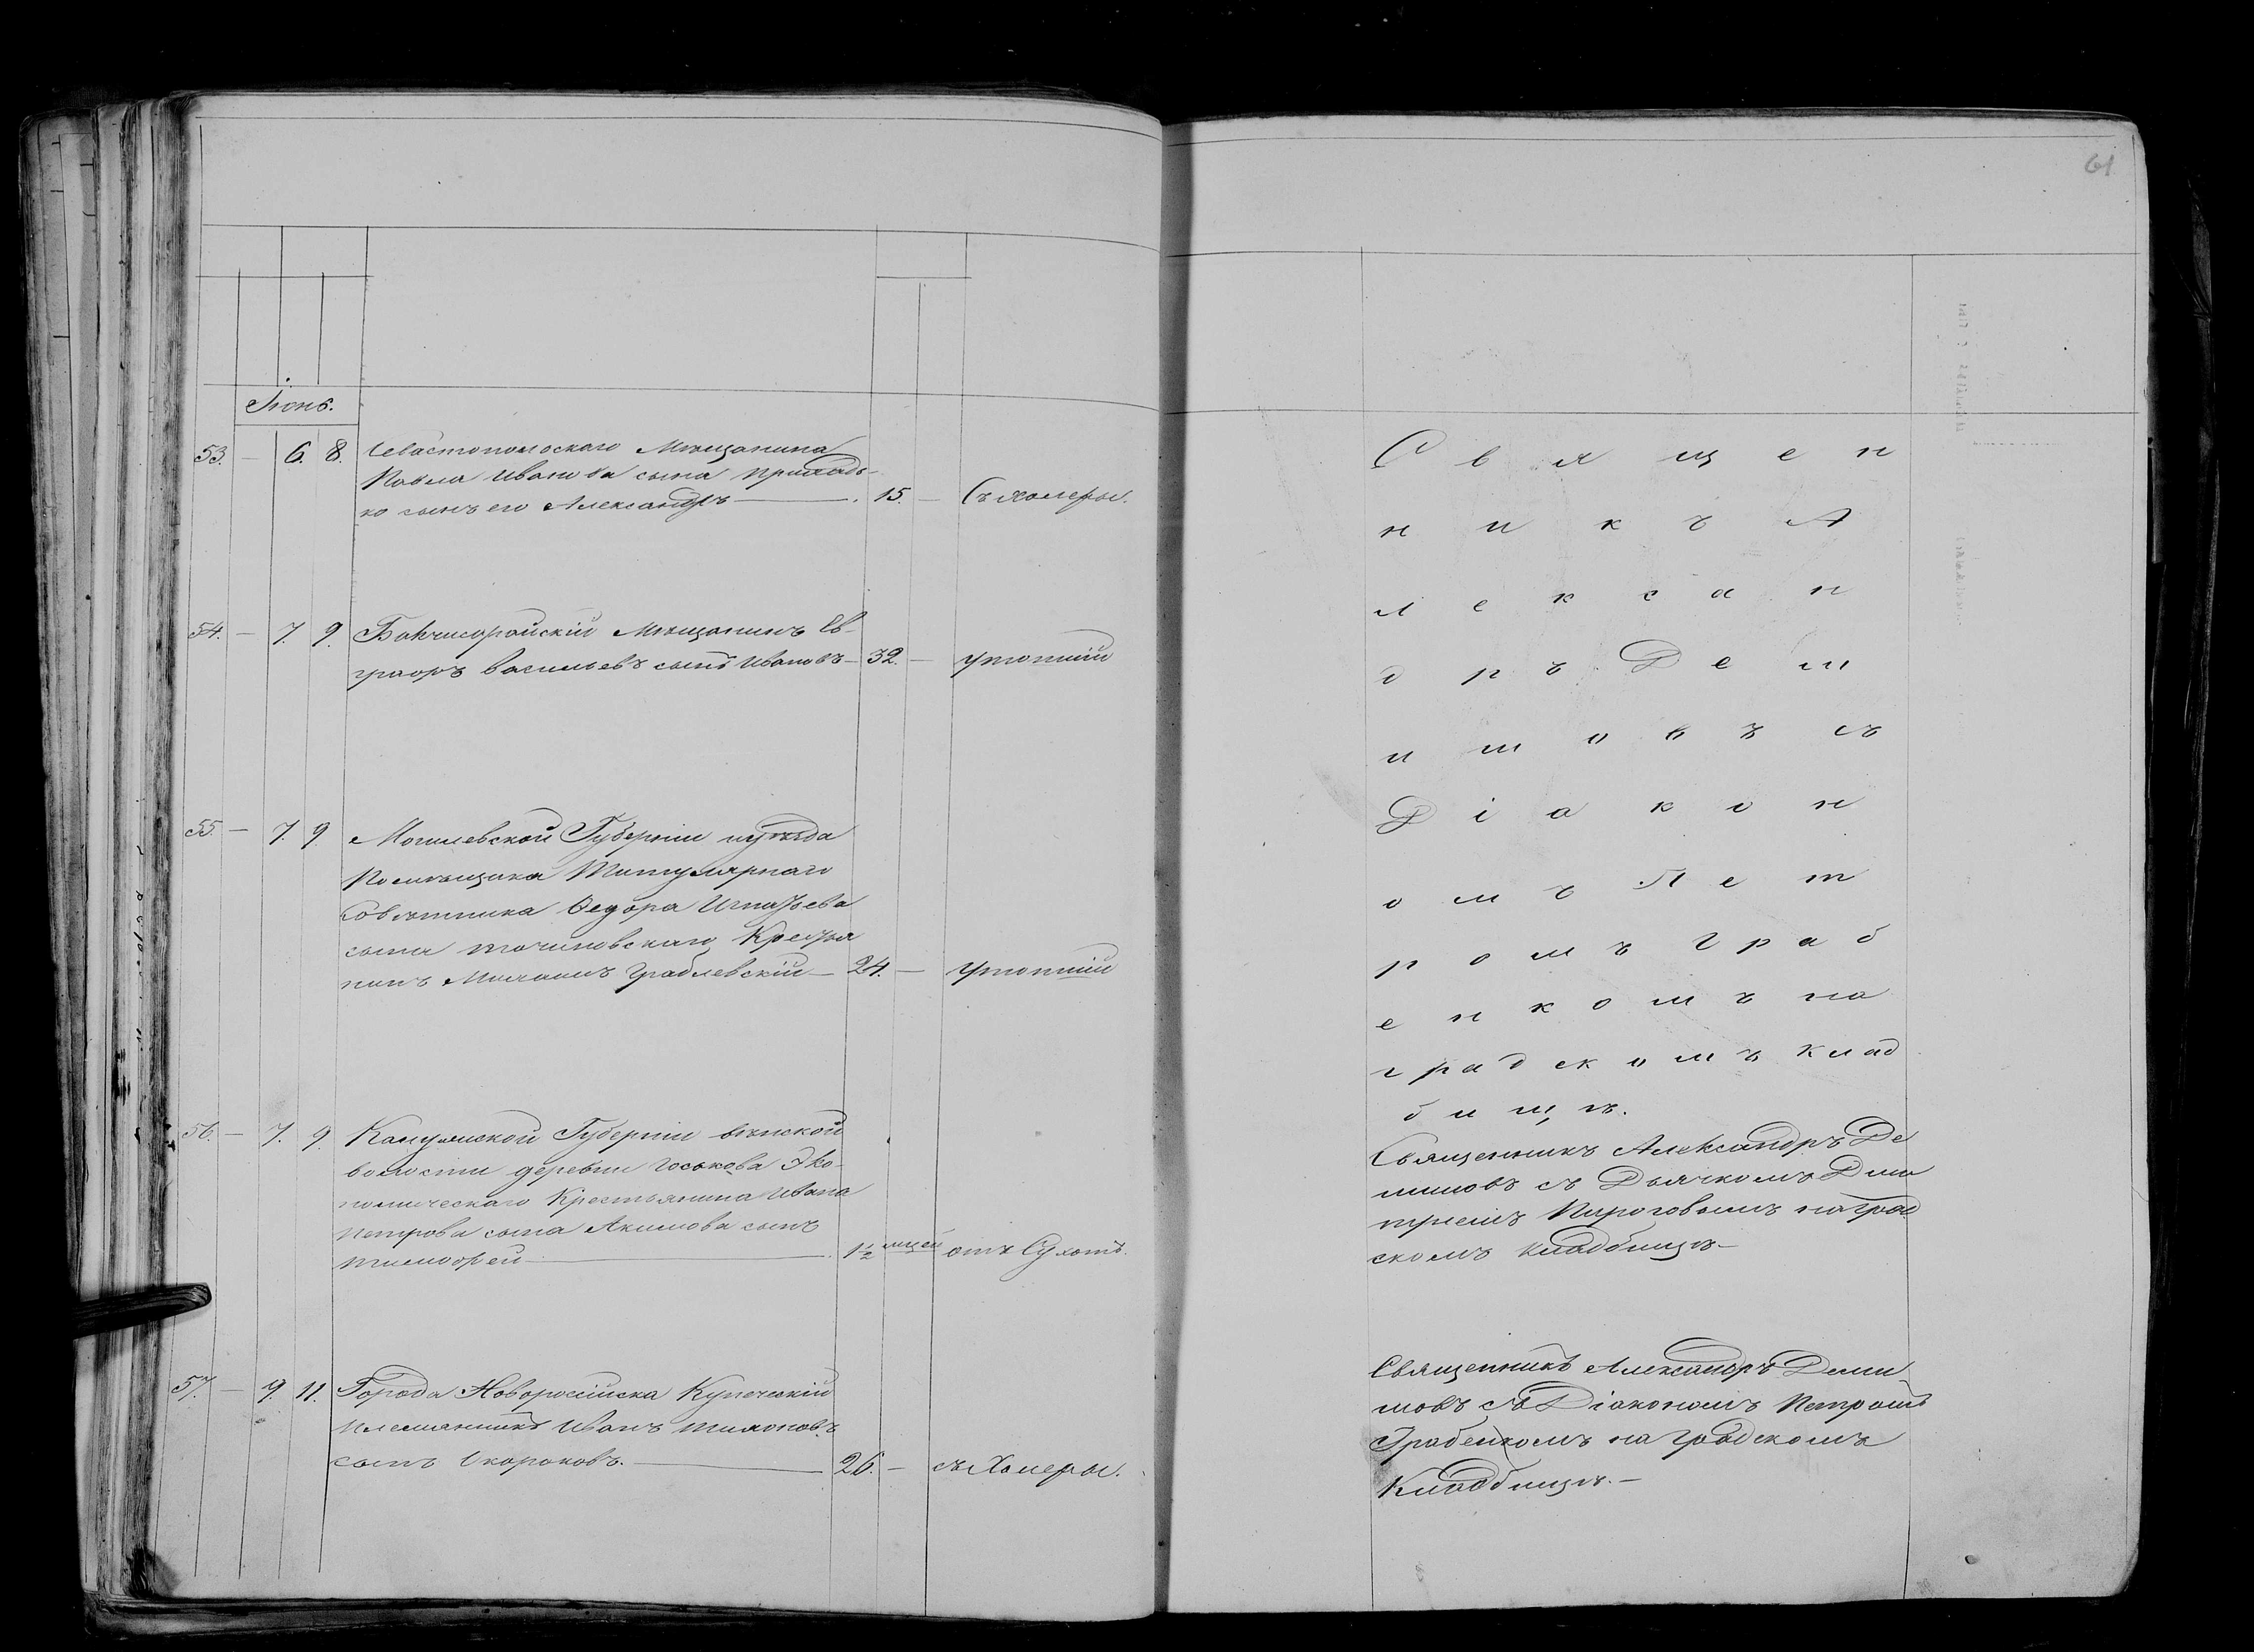 61
Іюнь.
53. — 6. 8. Севастопольскаго Мѣщанина
Павла Иванова сына Приходь-
ко сынъ его Александръ — 15. — Съ холеры.
54. — 7. 9. Бакчисарайскій Мѣщанинъ Ев-
графъ Васильевъ сынъ Ивановъ — 32. — утопшій
55. — 7. 9 Могилевской Губерніи и уѣзда
Помѣщика Титулярнаго
Совѣтника Ѳедора Игнатьева
сына Крестья
нинъ Граблевскій — 24. — утопшій
56. — 7. 9. Калужской Губерніи
волости деревни Эко-
номическаго Крестьянина Ивана
Петрова сына Акимова сынъ
Тимофей — 1½ мцси отъ Сухотъ.
57. — 9. 11. Города Новоросійска Купеческій
Племянникъ Иванъ Тихоновъ
сынъ Скороковъ. — 26. — съ Холеры.
Священ
никъ А
лексан
дръ Дем
ишовъ съ
Діакон
омъ Пет
ромъ Граб
енкомъ на
градскомъ клад
бищѣ.
Священникъ Александръ Де
мишовъ съ Дьячкомъ Дми
тріемъ Пироговымъ на град
скомъ кладбищѣ —
Священникъ Александръ Деми
шовъ съ Діакономъ Петромъ
Грабенкомъ на Градскомъ
Кладбищѣ. —